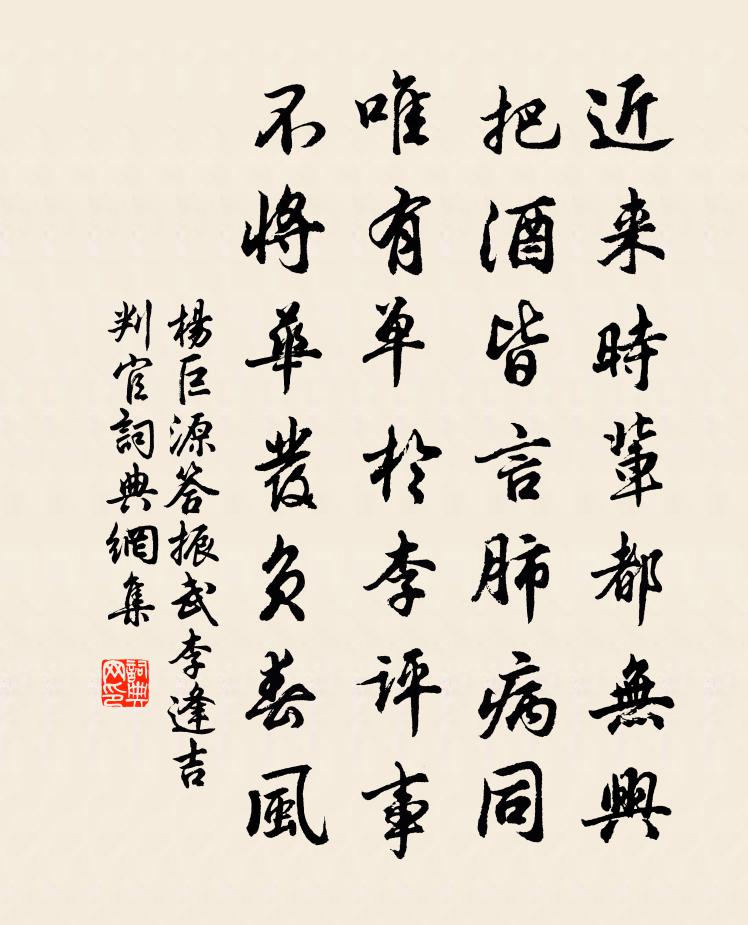 近来時輩都無興
把酒皆言肺病同
唯有单於李評事
不將華發負春風
楊巨源答振武李逢吉
判官詞典網集
詞典
网印